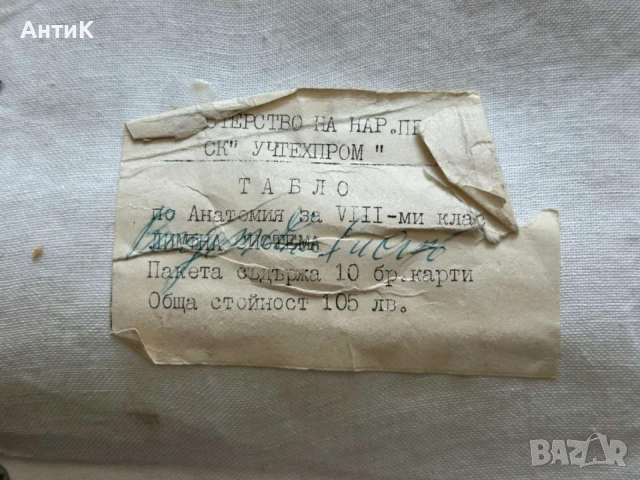 АнтиК
СТЕРСТВО НА НАР.П
СК" УЧТЕХПРОМ "
ТАБЛО
по Анатомия за VIII-ми клас
ЛИМФНА СИСТЕМА
Пакета съдържа 10 бр.карти
Обща стойност 105 лв.
BAZAR